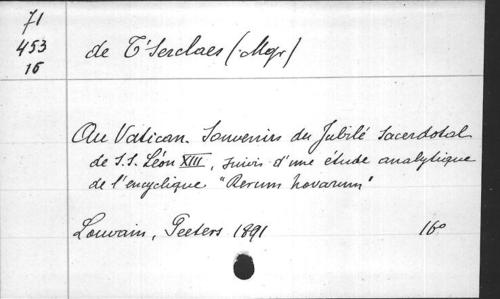 71
453
16
de T'Serclaes (Mgr)
Au Vatican. Souvenirs du Jubilé sacerdotal
de S.S. Léon XIII, suivis d'une étude analytique
de l'encyclique "Rerum novarum"
Louvain, Peeters 1891 16°